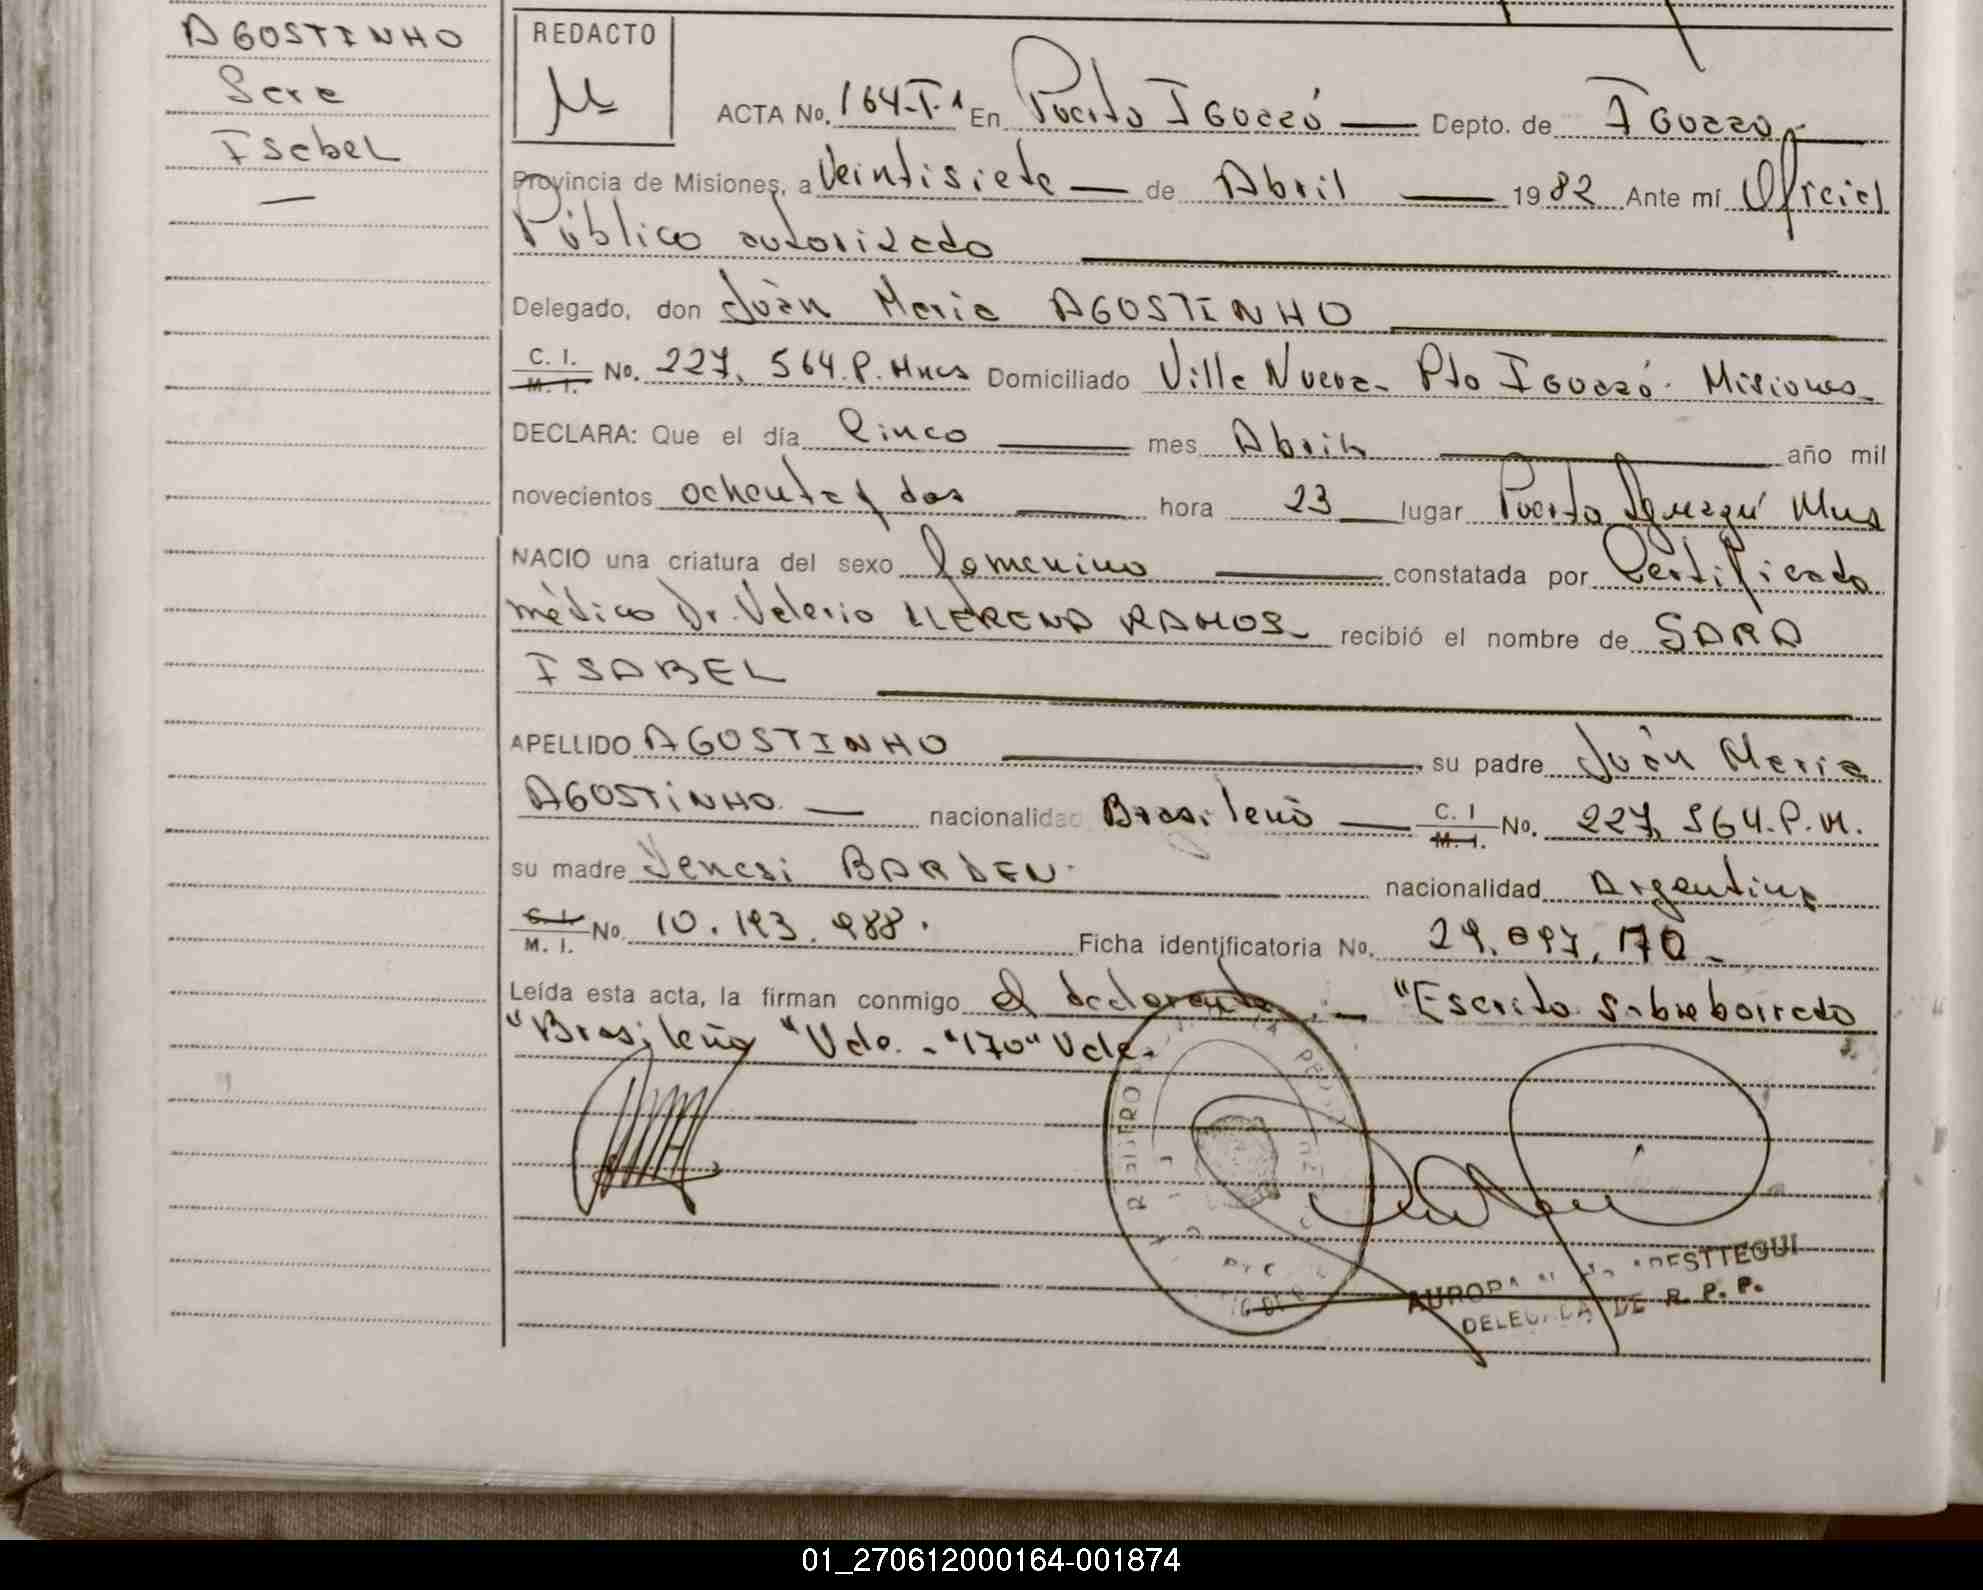 AGOSTINHO
Sara
Isabel
REDACTO
ACTA No. 164-T.1 En Puerto Iguazú Depto. de Iguazú
Provincia de Misiones, a Veintisiete de Abril 1982 Ante mí Oficial
Público autorizado
Delegado, don Juan Maria AGOSTINHO
C. I. M. I. No. 227.564.P.Mnes Domiciliado Villa Nueva - Pto Iguazú - Misiones
DECLARA: Que el día Cinco mes Abril año mil
novecientos ochenta y dos hora 23 lugar Puerto Iguazú Mnes
NACIO una criatura del sexo femenino constatada por Certificado
médico Dr. Valerio LLERENA RAMOS recibió el nombre de SARA
ISABEL
APELLIDO AGOSTINHO su padre Juan Maria
AGOSTINHO nacionalidad Brasileño C. I M. I. No. 227.564.P.M.
su madre BARDEN nacionalidad Argentina
C. I M. I. No. 10.193.988. Ficha identificatoria No. 29.097.170
Leída esta acta, la firman conmigo el declarante.- "Escrito sobreborrado
"Brasileño "Vale.-"170" Vale.
DELEGADA DE R. P. P.
01_270612000164-001874